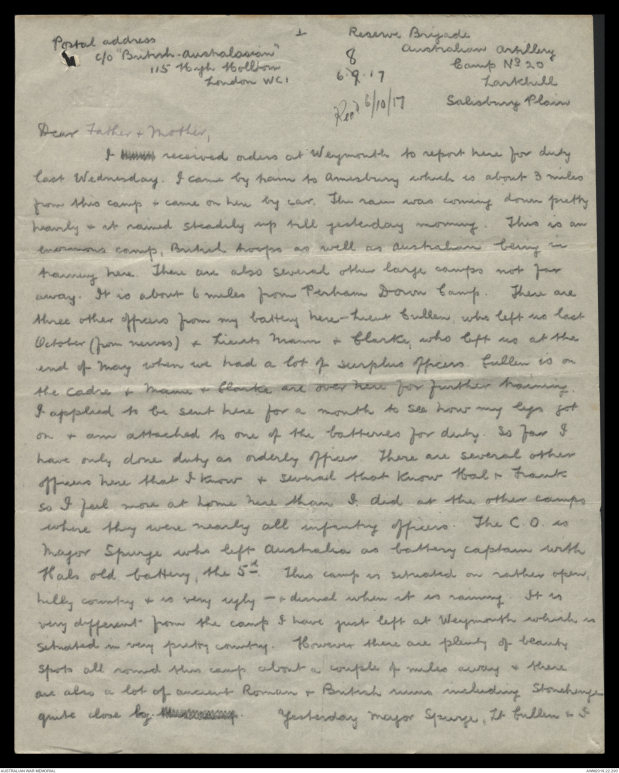 1
Postal address
c/o "British-Australasian"
115 High Holborn
London WC1
Reserve Brigade
Australian Artillery
Camp No 20
Larkhill
Salisbury Plain
8
6.9.17
Recd 6/10/17
Dear Father & Mother,
I received orders at Weymouth to report here for duty
last Wednesday. I came by train to Amesbury which is about 3 miles
from this camp & came on here by car. The rain was coming down pretty
heavily & it rained steadily up till yesterday morning. This is an
enormous camp, British troops as well as Australian being in
training here. There are also several other large camps not far
away. It is about 6 miles from Perham Down Camp. There are
three other officers from my battery here - Lieut Cullen, who left us last
October (from nerves) & Lieuts Mann & Clarke, who left us at the
end of May when we had a lot of surplus officers. Cullen is on
the cadre & Mann & Clarke are over here for further training.
I applied to be sent here for a month to see how my legs got
on & am attached to one of the batteries for duty. So far I
have only done duty as orderly officer. There are several other
officers here that I know & several that know Hal & Frank
so I feel more at home here than I did at the other camps
where they were nearly all infantry officers. The C.O. is
Major Spurge who left Australia as battery captain with
Hals old battery, the 5th. This camp is situated on rather open,
hilly country & is very ugly - & dismal when it is raining. It is
very different from the camp I have just left at Weymouth which is
situated in very pretty country. However there are plenty of beauty
spots all round this camp about a couple of miles away & there
are also a lot of ancient Roman & British ruins including Stonehenge
quite close by. Yesterday Major Spurge, Lt Cullen & I
AUSTRALIAN WAR MEMORIAL